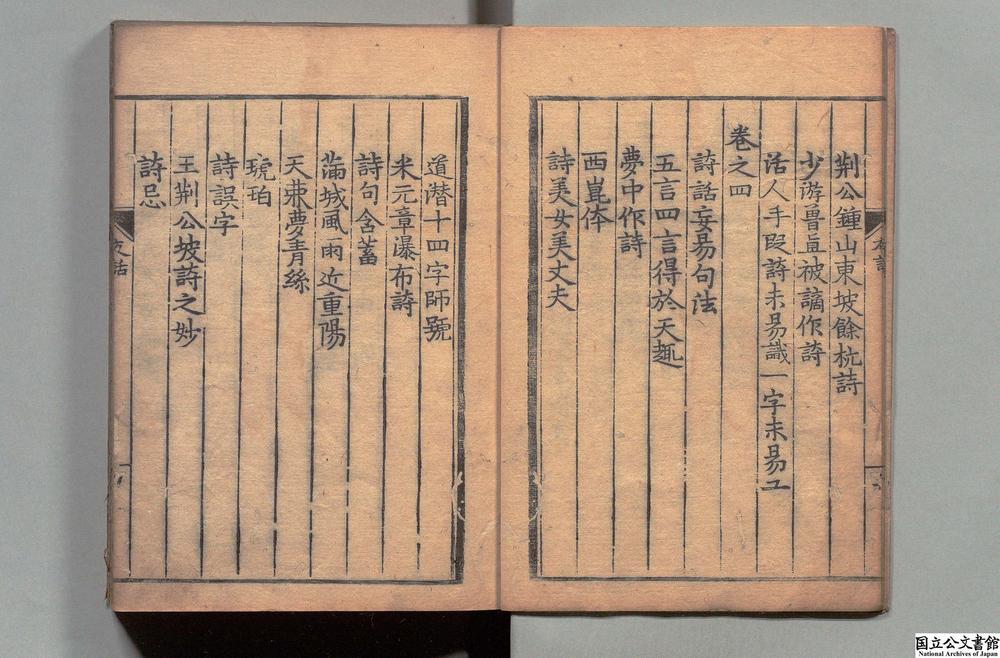 荆公鍾山東坡餘杭詩
少游魯直被謫作詩
活人手叚詩未易識一字未易工
卷之四
詩話妄易句法
五言四言得於天趣
夢中作詩
西崑体
詩美女美丈夫
道潜十四字師號
米元章瀑布詩
詩句含蓄
蒲城風雨近重陽
天棐夢青絲
琥珀
詩誤字
王荆公坡詩之妙
詩忌
夜話
国立公文書館
National Archives of Japan